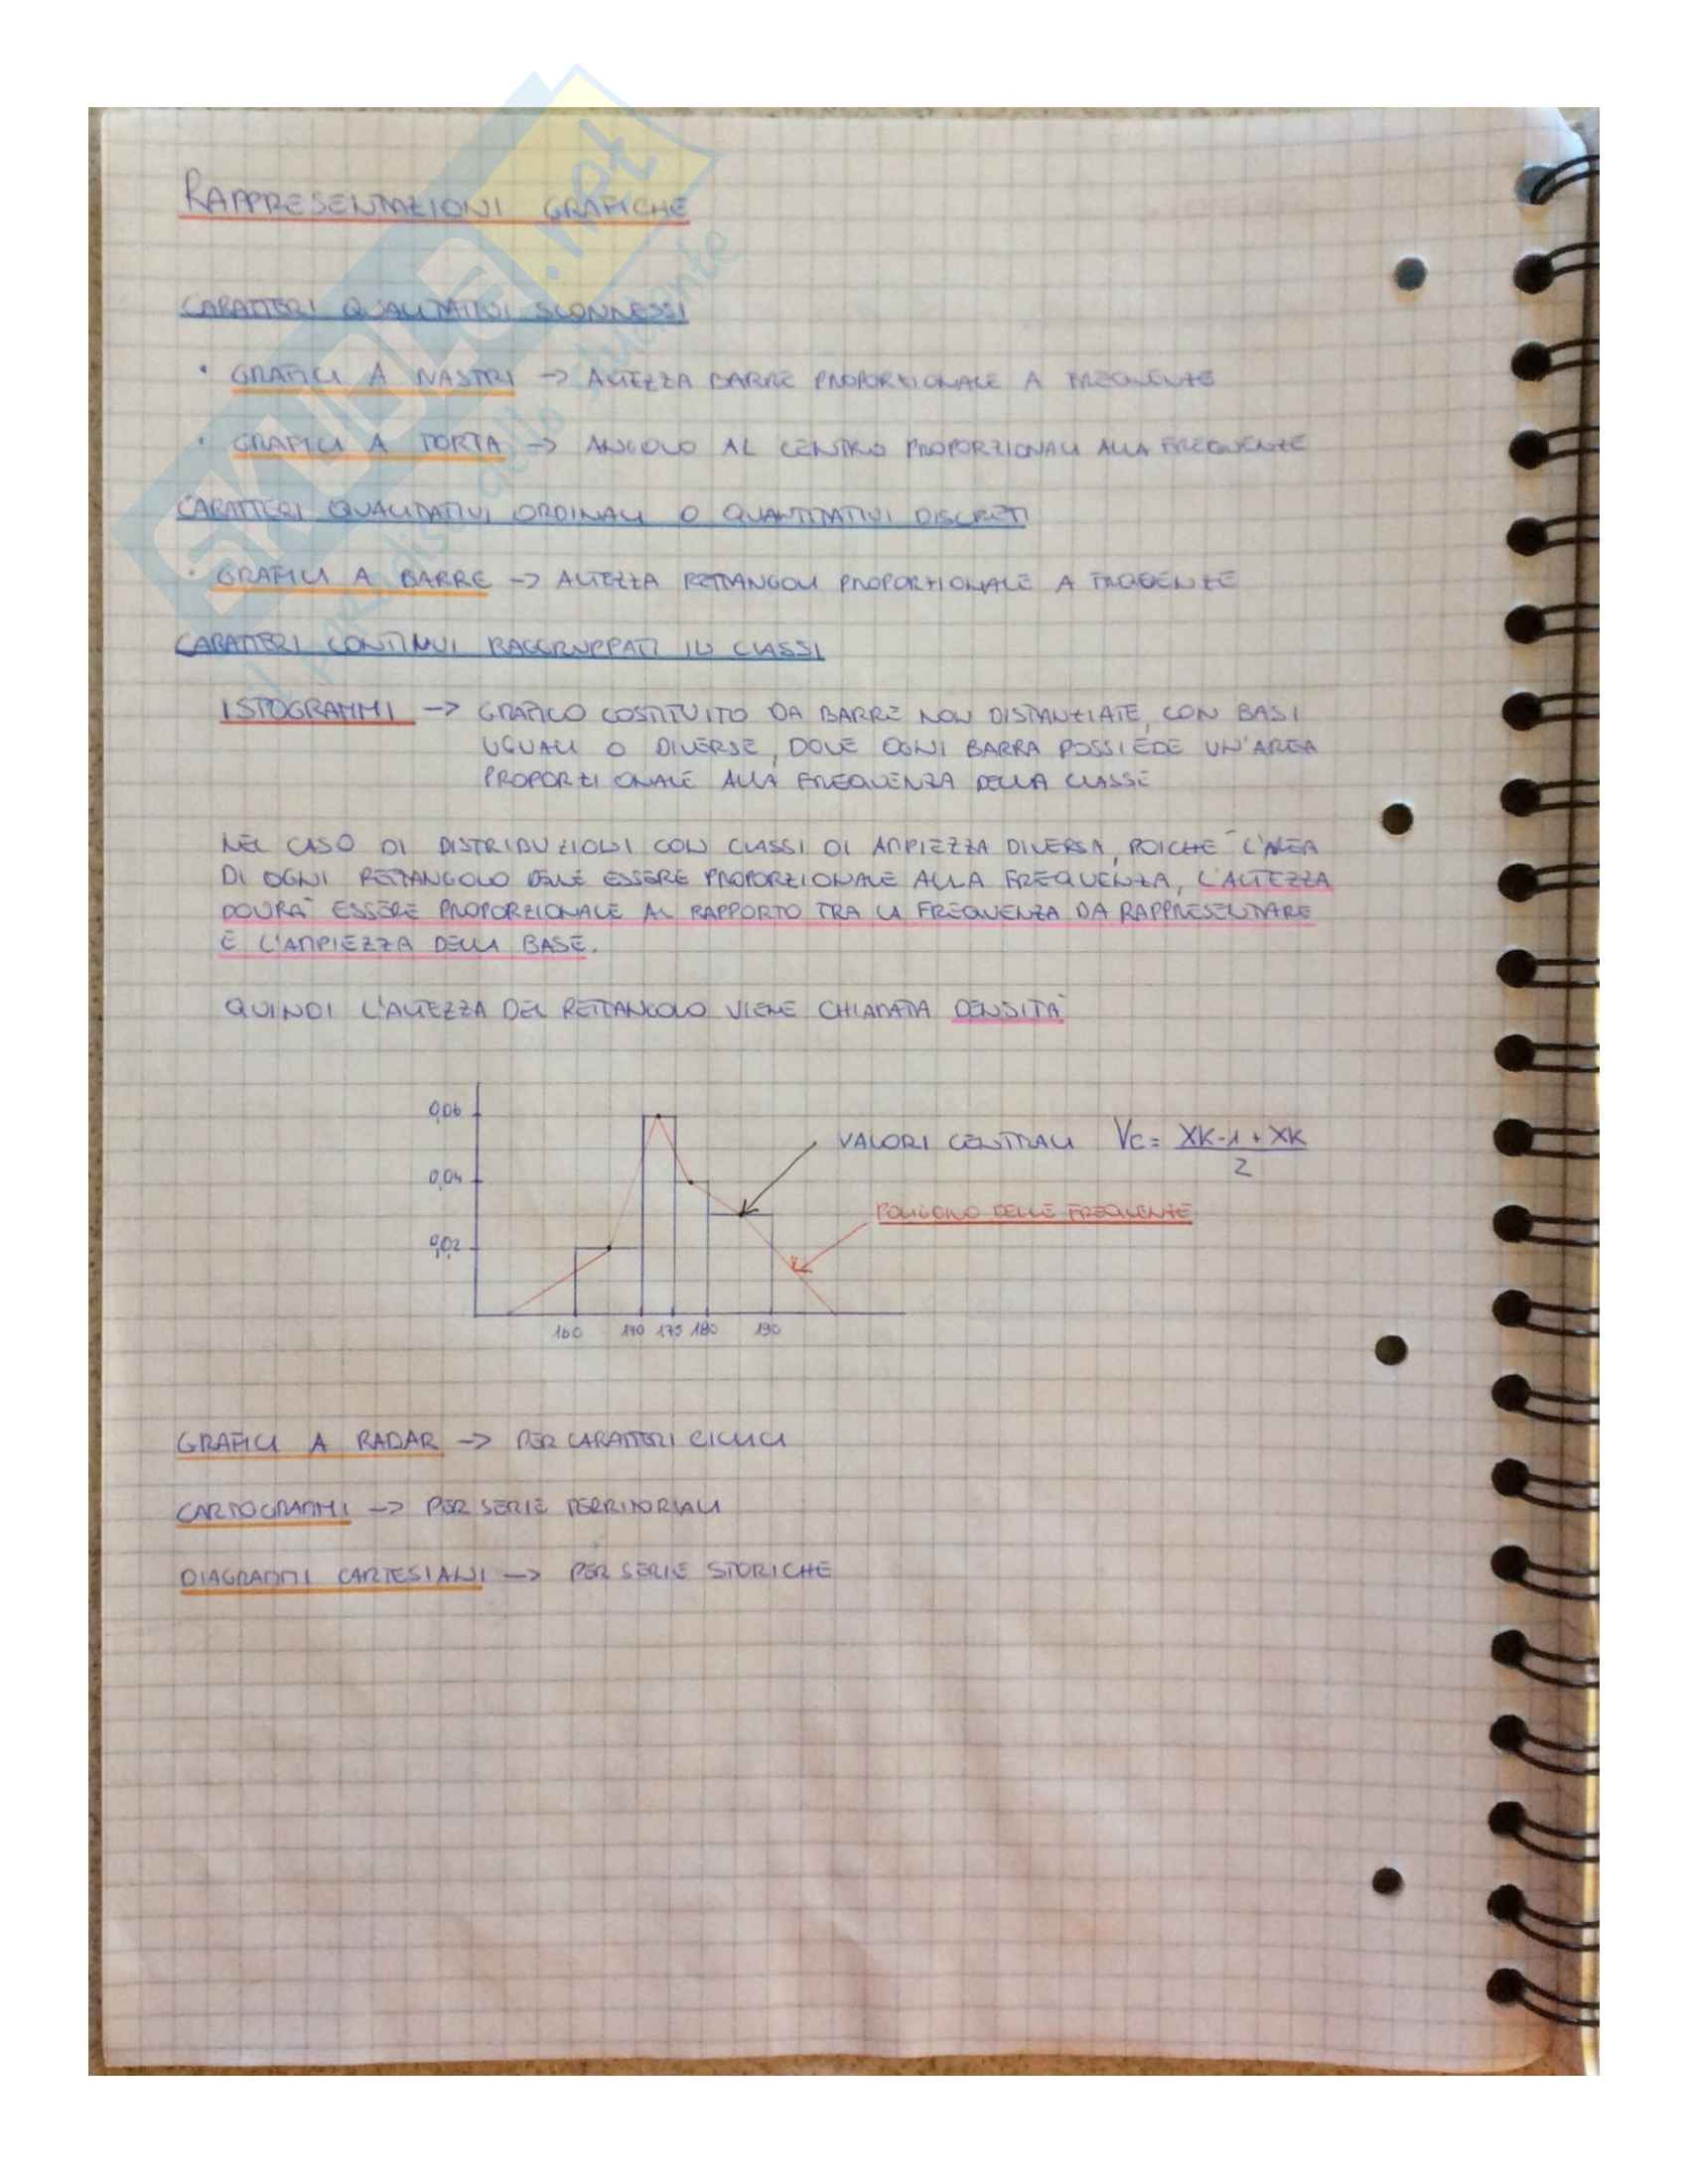 RAPPRESENTAZIONI GRAFICHE
CARATTERI QUALITATIVI SCONNESSI
• GRAFICI A NASTRI -> ALTEZZA BARRE PROPORZIONALE A FREQUENZE
• GRAFICI A TORTA -> ANGOLO AL CENTRO PROPORZIONALI ALLA FREQUENZE
CARATTERI QUALITATIVI ORDINALI O QUANTITATIVI DISCRETI
• GRAFICI A BARRE -> ALTEZZA RETTANGOLI PROPORZIONALE A FREQUENZE
CARATTERI CONTINUI RAGGRUPPATI IN CLASSI
ISTOGRAMMI -> GRAFICO COSTITUITO DA BARRE NON DISTANZIATE, CON BASI
UGUALI O DIVERSE, DOVE OGNI BARRA POSSIEDE UN'AREA
PROPORZIONALE ALLA FREQUENZA DELLA CLASSE
NEL CASO DI DISTRIBUZIONI CON CLASSI DI AMPIEZZA DIVERSA, POICHÈ L'AREA
DI OGNI RETTANGOLO DEVE ESSERE PROPORZIONALE ALLA FREQUENZA, L'ALTEZZA
DOVRÀ ESSERE PROPORZIONALE AL RAPPORTO TRA LA FREQUENZA DA RAPPRESENTARE
E L'AMPIEZZA DELLA BASE.
QUINDI L'ALTEZZA DEL RETTANGOLO VIENE CHIAMATA DENSITÀ
0,06
VALORI CENTRALI Vc = XK-1 + XK / 2
0,04
POLIGONO DELLE FREQUENZE
0,02
160 170 175 180 190
GRAFICI A RADAR -> PER CARATTERI CICLICI
CARTOGRAMMI -> PER SERIE TERRITORIALI
DIAGRAMMI CARTESIANI -> PER SERIE STORICHE
SKUOLA.net
il paradiso dello studente